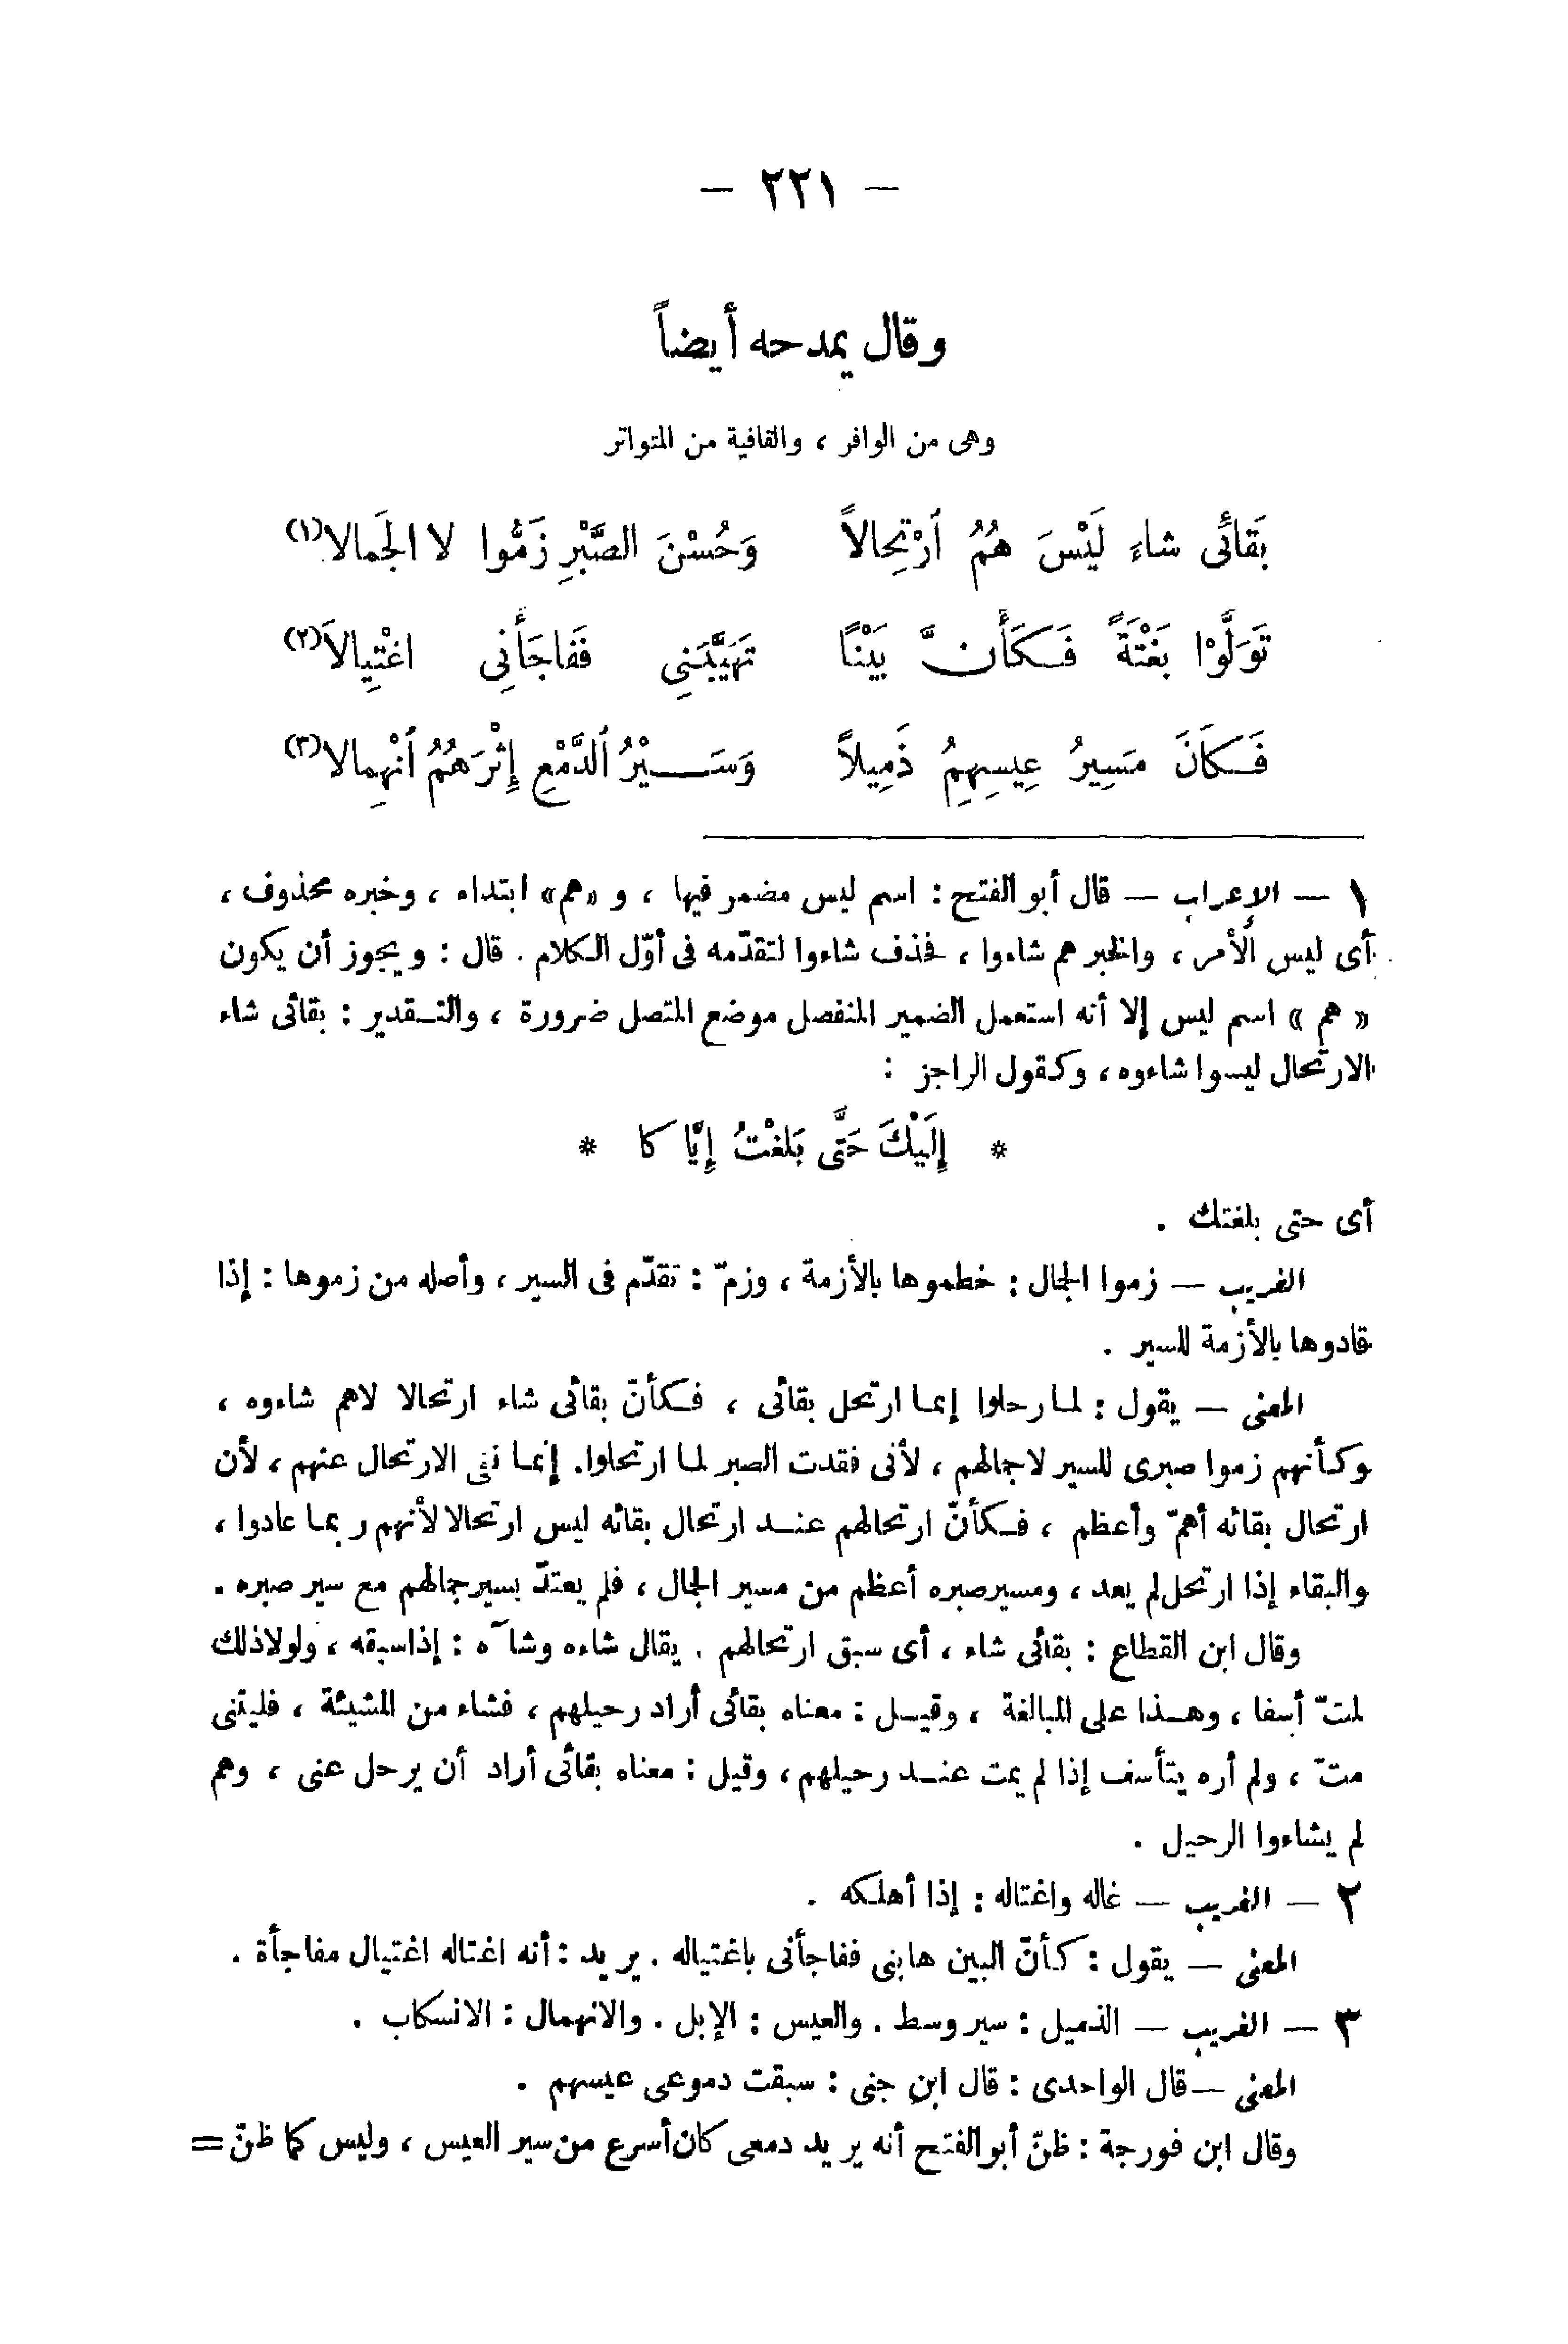 — ٢٢١ —
وقال يمدحه أيضاً
وهى من الوافر ، والقافية من المتواتر
بَقائى شاءَ لَيْسَ هُمُ ٱرْتِحالاً وَحُسْنَ الصَّبْرِ زَمُّوا لا الجَمالا(١)
تَوَلَّوْا بَغْتَةً فَكَأَنَّ بَيْنًا تَهَيَّبَنِى فَفاجَأَنِى اغْتِيالاَ(٢)
فَكَانَ مَسِيرُ عِيسِهِمِ ذَمِيلاً وَسَيْرُ ٱلدَّمْعِ إِثْرَهُمُ ٱنْهِمالا(٣)
١ — الإعراب — قال أبو الفتح : اسم ليس مضمر فيها ، و «هم» ابتداء ، وخبره محذوف ،
أى ليس الأمر ، والخبر هم شاءوا ، فحذف شاءوا لتقدّمه فى أوّل الكلام . قال : ويجوز أن يكون
« هم » اسم ليس إلا أنه استعمل الضمير المنفصل موضع المتصل ضرورة ، والتقدير : بقائى شاء
الارتحال ليسوا شاءوه ، وكقول الراجز :
* إِلَيْكَ حَتَّى بَلَغْتُ إِيَّا كا *
أى حتى بلغتك .
الغريب — زموا الجمال : خطموها بالأزمة ، وزمّ : تقدّم فى السير ، وأصله من زموها : إذا
قادوها بالأزمة للسير .
المعنى — يقول : لما رحلوا إنما ارتحل بقائى ، فكأنّ بقائى شاء ارتحالا لاهم شاءوه ،
وكأنهم زموا صبرى للسير لاجمالهم ، لأنى فقدت الصبر لما ارتحلوا. إنما نفى الارتحال عنهم ، لأن
ارتحال بقائه أهمّ وأعظم ، فكأنّ ارتحالهم عند ارتحال بقائه ليس ارتحالا لأنهم ربما عادوا ،
والبقاء إذا ارتحل لم يعد ، ومسير صبره أعظم من مسير الجمال ، فلم يعتدّ بسير جمالهم مع سير صبره .
وقال ابن القطاع : بقائى شاء ، أى سبق ارتحالهم . يقال شاءه وشآه : إذا سبقه ، ولولا ذلك
لمتّ أسفا ، وهذا على المبالغة ، وقيل : معناه بقائى أراد رحيلهم ، فشاء من المشيئة ، فليتنى
متّ ، ولم أره يتأسف إذا لم يمت عند رحيلهم ، وقيل : معناه بقائى أراد أن يرحل عنى ، وهم
لم يشاءوا الرحيل .
٢ — الغريب — غاله واغتاله : إذا أهلكه .
المعنى — يقول : كأنّ البين هابنى ففاجأنى باغتياله . يريد : أنه اغتاله اغتيال مفاجأة .
٣ — الغريب — الذميل : سير وسط . والعيس : الإبل . والانهمال : الانسكاب .
المعنى — قال الواحدى : قال ابن جنى : سبقت دموعى عيسهم .
وقال ابن فورجة : ظنّ أبو الفتح أنه يريد دمعى كان أسرع من سير العيس ، وليس كما ظنّ =